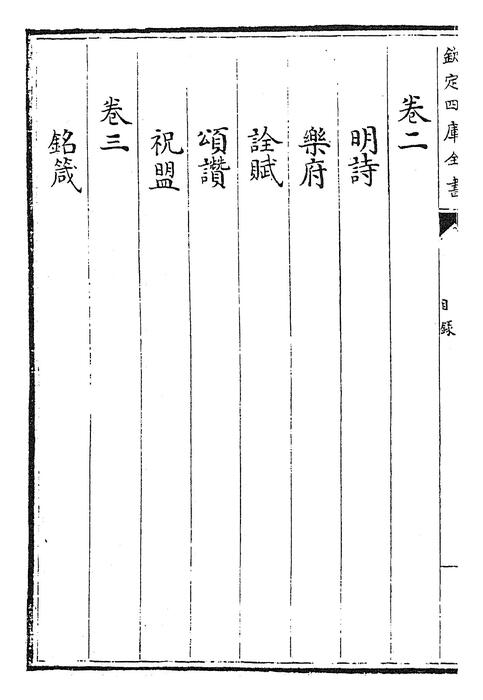 欽定四庫全書
目錄
卷二
明詩
樂府
詮賦
頌讚
祝盟
卷三
銘箴